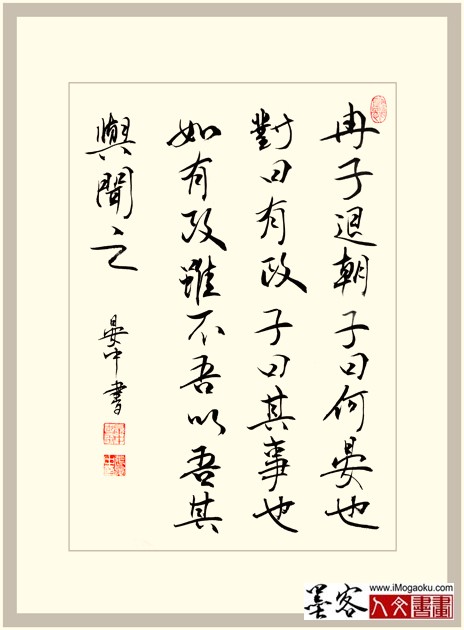 冉子退朝子曰何晏也
對曰有政子曰其事也
如有政雖不吾以吾其
與聞之
晏中書
墨客
www.iMogaoku.com
人文書畫